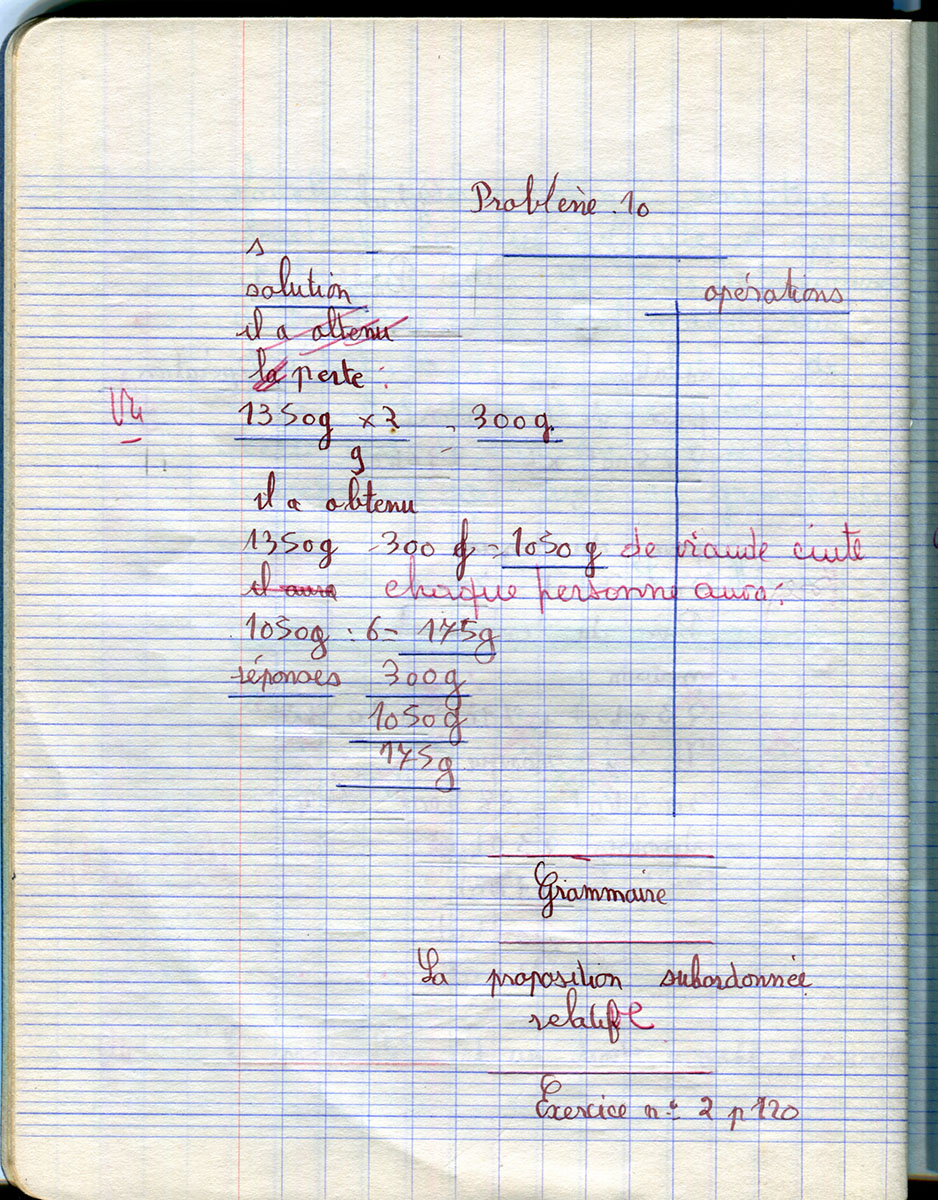 Problème. 10
s
solution
opérations
il a altenu
la perte :
Vu
1350g × 2 = 300g.
9
il a obtenu
1350g - 300 g = 1050 g de viande cuite
il aura chaque personne aura :
1050g : 6 = 175g
réponses 300g
1050g
175g
Grammaire
La proposition subordonnée
relative
Exercice n° 2 p 120